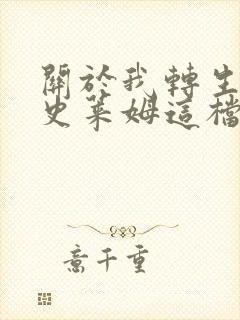 關於我轉生
史萊姆這檔
意千重